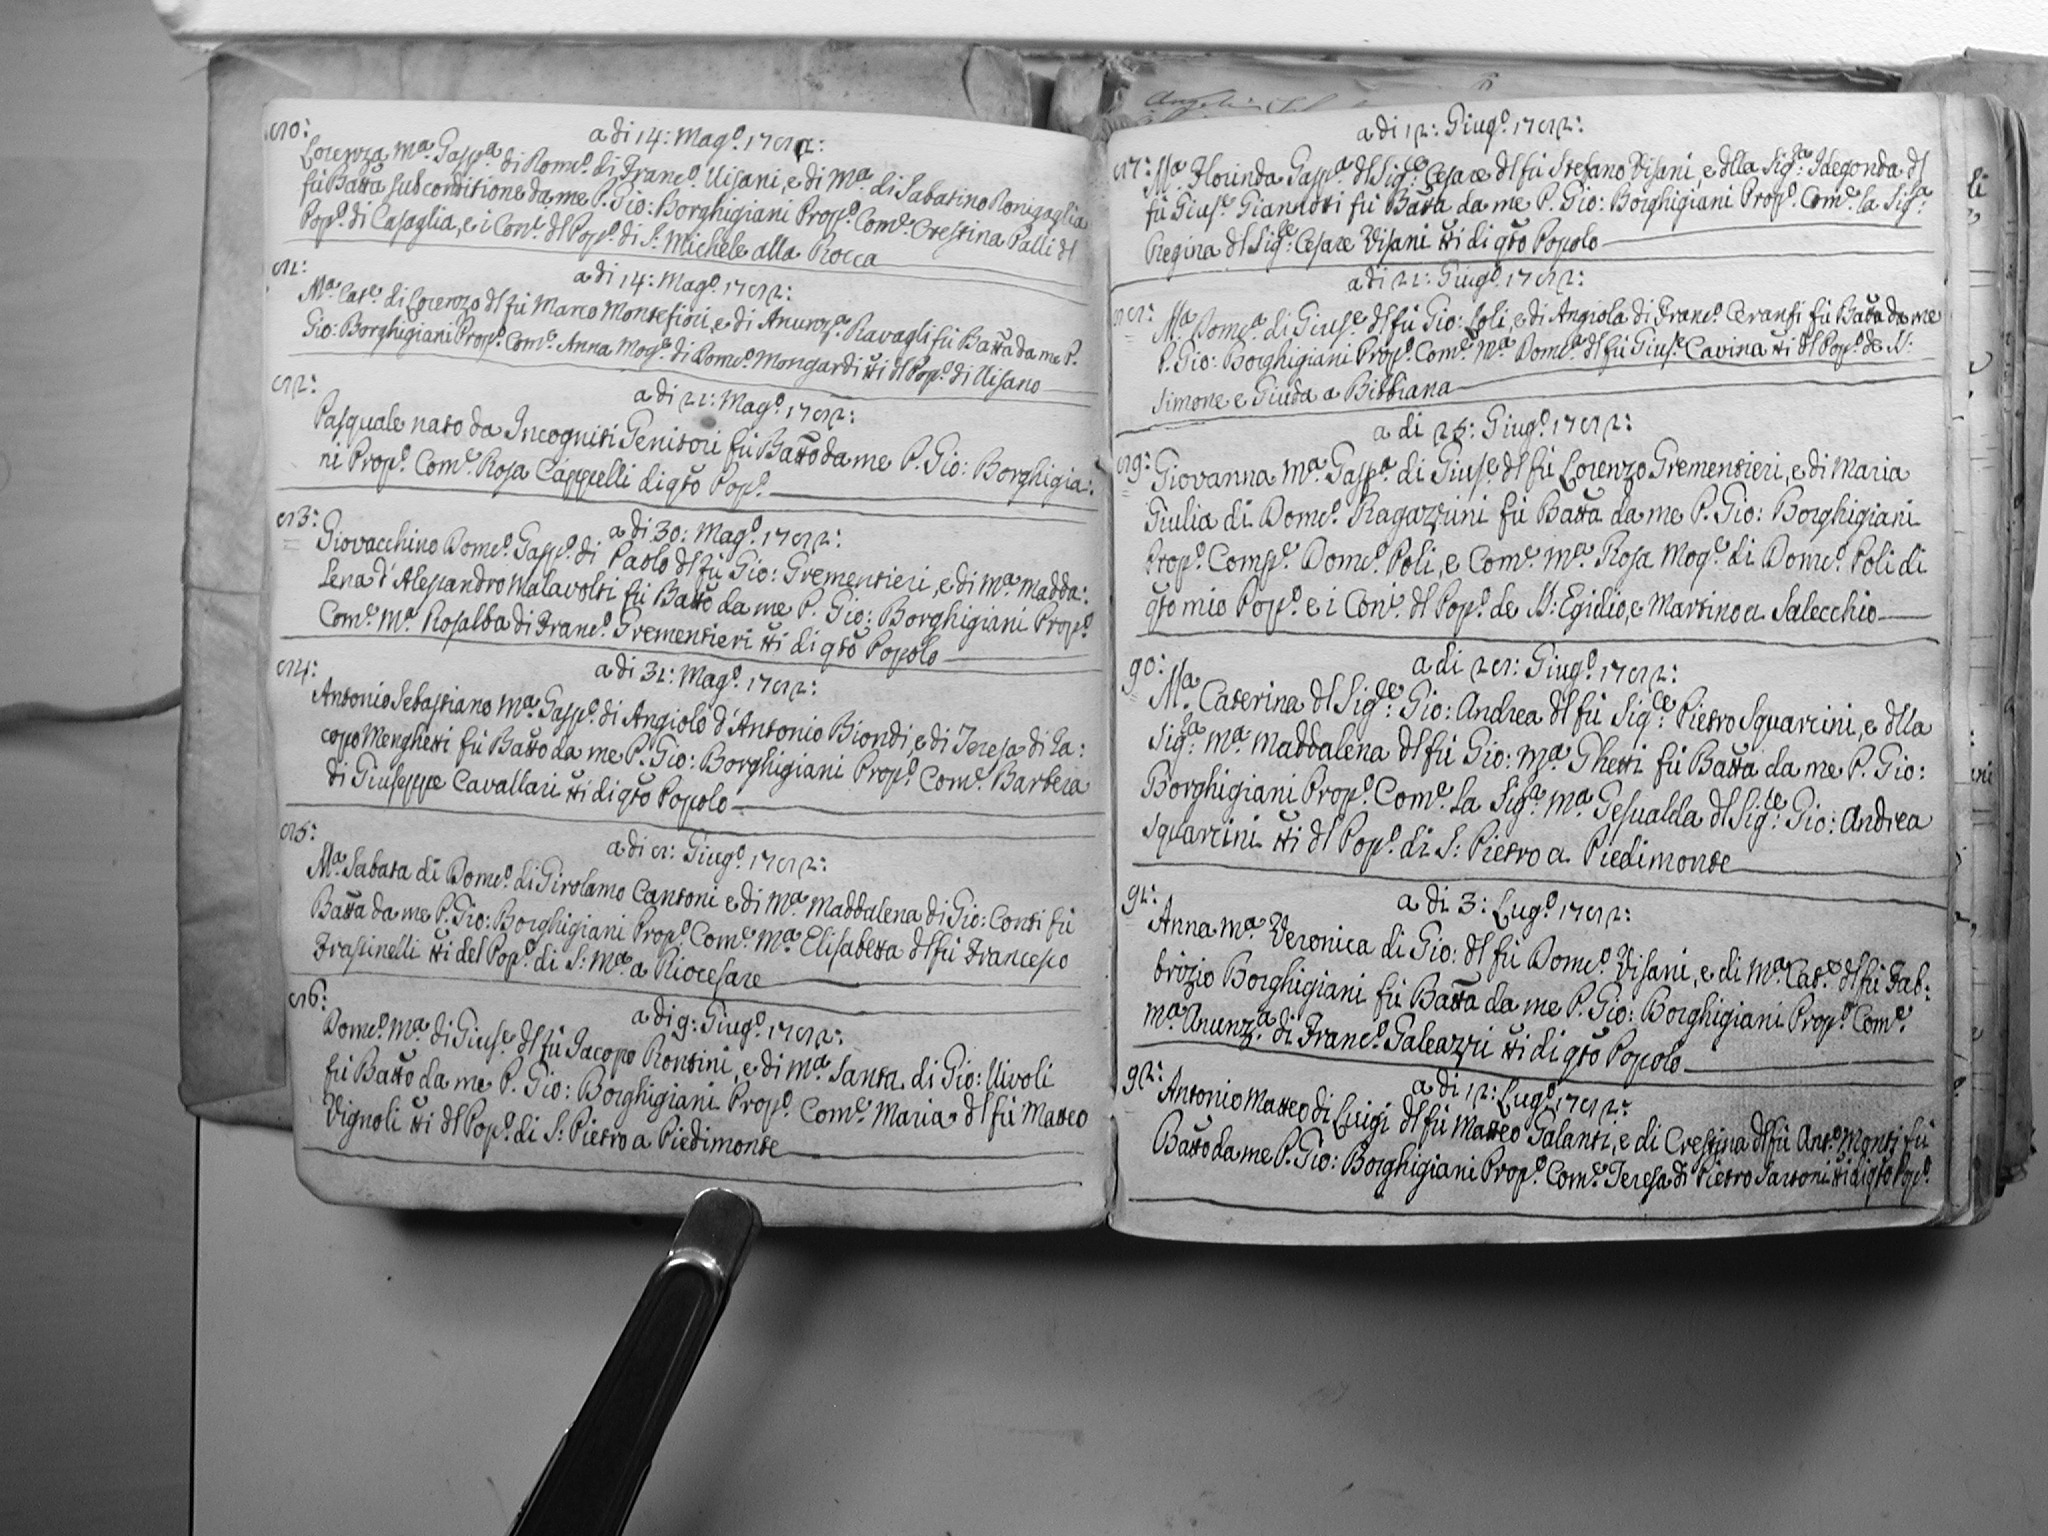 80:
a di 14: Magº. 1782:
Lorenza Mª. Gasp.ª di Domcº. di Francº. Visani, e di Mª. di Sabatino Ronigaglia
fù Batta sub conditione da me P. Gio: Borghigiani Propº. Comᵉ. Crestina Palli dl
Popº. di Casaglia, e i Conᵗ. dl Popº. di S: Michele alla Rocca
81:
a di 14: Magº. 1782:
Mª. Catᵉ. di Lorenzo dl fù Marco Montefiori, e di Anunzª. Ravagli fù Batta da me P.
Gio: Borghigiani Propº. Comᵉ. Anna Mogᵉ. di Domcº. Mongardi tti dl Popº. di Visano
82:
a di 21: Magº. 1782:
Pasquale nato da Incogniti Genitori fù Batto da me P. Gio: Borghigia:
ni Propº. Comᵉ. Rosa Cappelli di qto Popº.
83:
a di 30: Magº. 1782:
Giovacchino Domcº. Gaspº. di Paolo dl fù Gio: Grementieri, e di Mª. Madda:
lena d'Alessandro Malavolti fù Batto da me P. Gio: Borghigiani Propº.
Comᵉ. Mª. Rosalba di Francº. Grementieri tti di qto Popolo
84:
a di 31: Magº. 1782:
Antonio Sebastiano Mª. Gaspº. di Angiolo d'Antonio Biondi, e di Teresa di Ja:
copo Menghetti fù Batto da me P. Gio: Borghigiani Propº. Comᵉ. Barbera
di Giuseppe Cavallari tti di qto Popolo
85:
a di 8: Giugº. 1782:
Mª. Sabata di Domcº. di Girolamo Cantoni e di Mª. Maddalena di Gio: Conti fù
Batta da me P. Gio: Borghigiani Propº. Comᵉ. Mª. Elisabetta dl fù Francesco
Frassinelli tti del Popº. di S: Mª. a Riocesare
86:
a di 9: Giugº. 1782:
Domcº. Mª. di Giusᵉ. dl fù Jacopo Rontini, e di Mª. Santa di Gio: Vivoli
fù Batto da me P. Gio: Borghigiani Propº. Comᵉ. Maria dl fù Matteo
Vignoli tti dl Popº. di S: Pietro a Piedimonte
a di 12: Giugº. 1782:
87: Mª. Florinda Gaspª. dl Sigᵉ. Cesare dl fù Stefano Visani, e dlla Sigª. Idegonda dl
fù Giusᵉ. Giannotti fù Batta da me P. Gio: Borghigiani Propº. Comᵉ. la Sigª:
Regina dl Sigᵉ: Cesare Visani tti di qto Popolo
a di 21: Giugº. 1782:
88: Mª. Domcª. di Giusᵉ. dl fù Gio: Poli, e di Angiola di Francº. Ceransi fù Batta da me
P. Gio: Borghigiani Propº. Comᵉ. Mª. Domcª. dl fù Giusᵉ. Cavina tti dl Popº. de SS:
Simone e Giuda a Bibbiana
a di 25: Giugº. 1782:
89: Giovanna Mª. Gaspª. di Giusᵉ. dl fù Lorenzo Grementieri, e di Maria
Giulia di Domcº. Ragazzini fù Batta da me P. Gio: Borghigiani
Propº. Compᵉ. Domcº. Poli, e Comᵉ. Mª. Rosa Mogᵉ. di Domcº. Poli di
qto mio Popº. e i Conⁱ. dl Popº. de SS: Egidio, e Martino a Salecchio
a di 28: Giugº. 1782:
90: Mª. Caterina dl Sigʳᵉ: Gio: Andrea dl fù Sigʳᵉ: Pietro Squarcini, e dlla
Sigª. Mª. Maddalena dl fù Gio: Mª. Ghetti fù Batta da me P. Gio:
Borghigiani Propº. Comᵉ. la Sigª. Mª. Gesualda dl Sigʳᵉ: Gio: Andrea
Squarcini tti dl Popº. di S: Pietro a Piedimonte
91:
a di 3: Lugº. 1782:
Anna Mª. Veronica di Gio: dl fù Domcº. Visani, e di Mª. Catᵉ. dl fù Fab:
brizio Borghigiani fù Batta da me P. Gio: Borghigiani Propº. Comᵉ.
Mª. Anunzª. di Francº. Galeazzi tti di qto Popolo
92:
a di 12: Lugº. 1782:
Antonio Matteo di Luigi dl fù Matteo Galanti, e di Crestina dl fù Antº. Monti fù
Batto da me P. Gio: Borghigiani Propº. Comᵉ. Teresa di Pietro Sartoni tti di qto Popº.